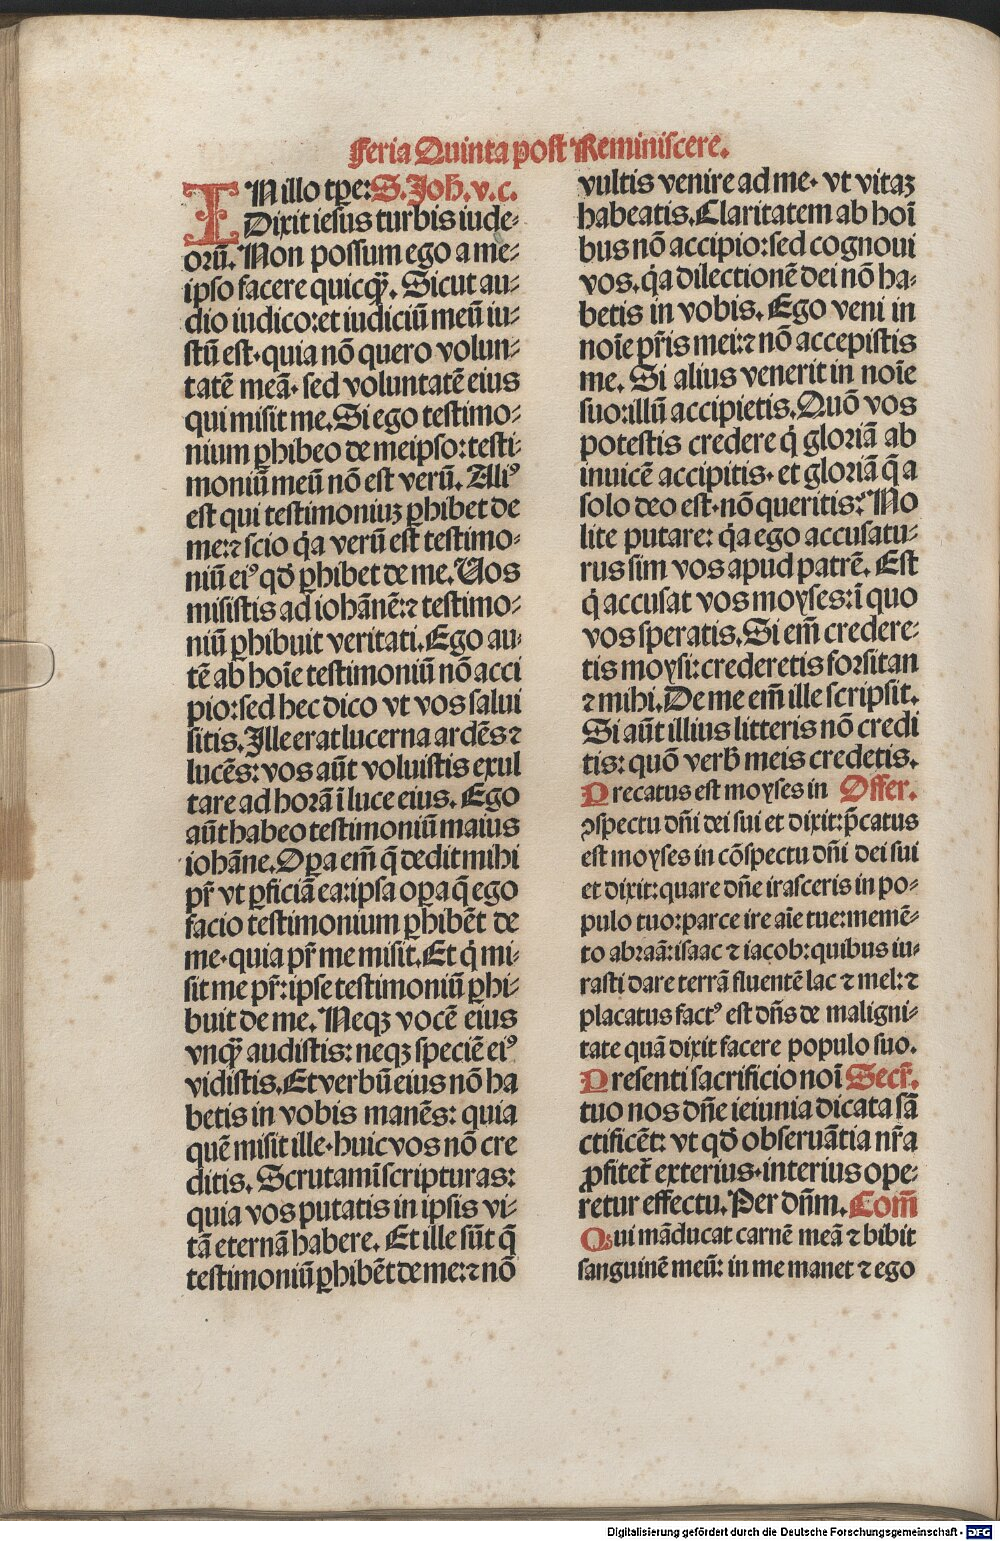 Feria Quinta post Reminiscere.
IN illo tp̄e: S. Joh. v. c.
Dixit iesus turbis iude⸗
oꝝū. Non possum ego a me⸗
ipso facere quicq̄ꝫ. Sicut au⸗
dio iudico: et iudiciū meū iu⸗
stū est· quia nō quero volun⸗
tatē meā· sed voluntatē eius
qui misit me. Si ego testimo⸗
nium ꝑhibeo de meipso: testi⸗
moniū meū nō est verū. Aliꝰ
est qui testimoniuꝫ ꝑhibet de
me: ⁊ scio q̇a verū est testimo⸗
niū eiꝰ qđ ꝑhibet de me. Vos
misistis ad iohānē: ⁊ testimo⸗
niū ꝑhibuit veritati. Ego au⸗
tē ab hoīe testimoniū nō acci
pio: sed hec dico vt vos salui
sitis. Ille erat lucerna ardēs ⁊
lucēs: vos aūt voluistis exul
tare ad horā ī luce eius. Ego
aūt habeo testimoniū maius
iohāne. Oꝑa em̄ q̄ dedit mihi
pr̄ vt ꝑficiā ea: ipsa oꝑa q̄ ego
facio testimonium ꝑhibēt de
me· quia pr̄ me misit. Et q̇ mi⸗
sit me pr̄: ipse testimoniū ꝑhi⸗
buit de me. Neqꝫ vocē eius
vnq̄ꝫ audistis: neqꝫ speciē eiꝰ
vidistis. Et verbū eius nō ha
betis in vobis manēs: quia
quē misit ille· huic vos nō cre
ditis. Scrutamī scripturas:
quia vos putatis in ipsis vi⸗
tā eternā habere. Et ille sūt q̄
testimoniū ꝑhibēt de me: ⁊ nō
vultis venire ad me· vt vitaꝫ
habeatis. Claritatem ab hoī
bus nō accipio: sed cognoui
vos. q̇a dilectionē dei nō ha⸗
betis in vobis. Ego veni in
noīe pr̄is mei: ⁊ nō accepistis
me. Si alius venerit in noīe
suo: illū accipietis. Quō vos
potestis credere q̇ gloriā ab
inuicē accipitis· et gloriā q̄ a
solo deo est· nō queritis? No
lite putare: q̇a ego accusatu⸗
rus sim vos apud patrē. Est
q̇ accusat vos moyses: ī quo
vos speratis. Si em̄ credere⸗
tis moysi: crederetis forsitan
⁊ mihi. De me em̄ ille scripsit.
Si aūt illius litteris nō credi
tis: quō verƀ meis credetis.
Precatus est moyses in Offer.
ꝯspectu dn̄i dei sui et dixit: p̄catus
est moyses in cōspectu dn̄i dei sui
et dixit: quare dn̄e irasceris in po⸗
pulo tuo: parce ire aīe tue: memē⸗
to abraā: isaac ⁊ iacob: quibus iu⸗
rasti dare terrā fluentē lac ⁊ mel: ⁊
placatus factꝰ est dn̄s de maligni⸗
tate quā dixit facere populo suo.
Presenti sacrificio noī Secr̄.
tuo nos dn̄e ieiunia dicata sā
ctificēt: vt qđ obseruātia nr̄a
ꝓfitet᷑ exterius· interius ope⸗
retur effectu. Per dn̄m. Com̄
Qui māducat carnē meā ⁊ bibit
sanguinē meū: in me manet ⁊ ego
Digitalisierung gefördert durch die Deutsche Forschungsgemeinschaft - DFG